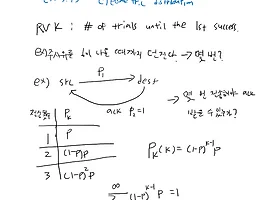 distribution
RV K : # of trials until the 1st success.
ex) 주사위를 1이 나올 때까지 던진다. → 몇 번?
ex) src → dest
P₁
ack P₂=1
→ 몇 번 전송해야 ack
받을 수 있는가?
전송횟수 | Pₖ
1 | p
2 | (1-p)p
3 | (1-p)²p
Pₖ(k) = (1-p)ᵏ⁻¹p
∞
Σ (1-p)ᵏ⁻¹ p = 1